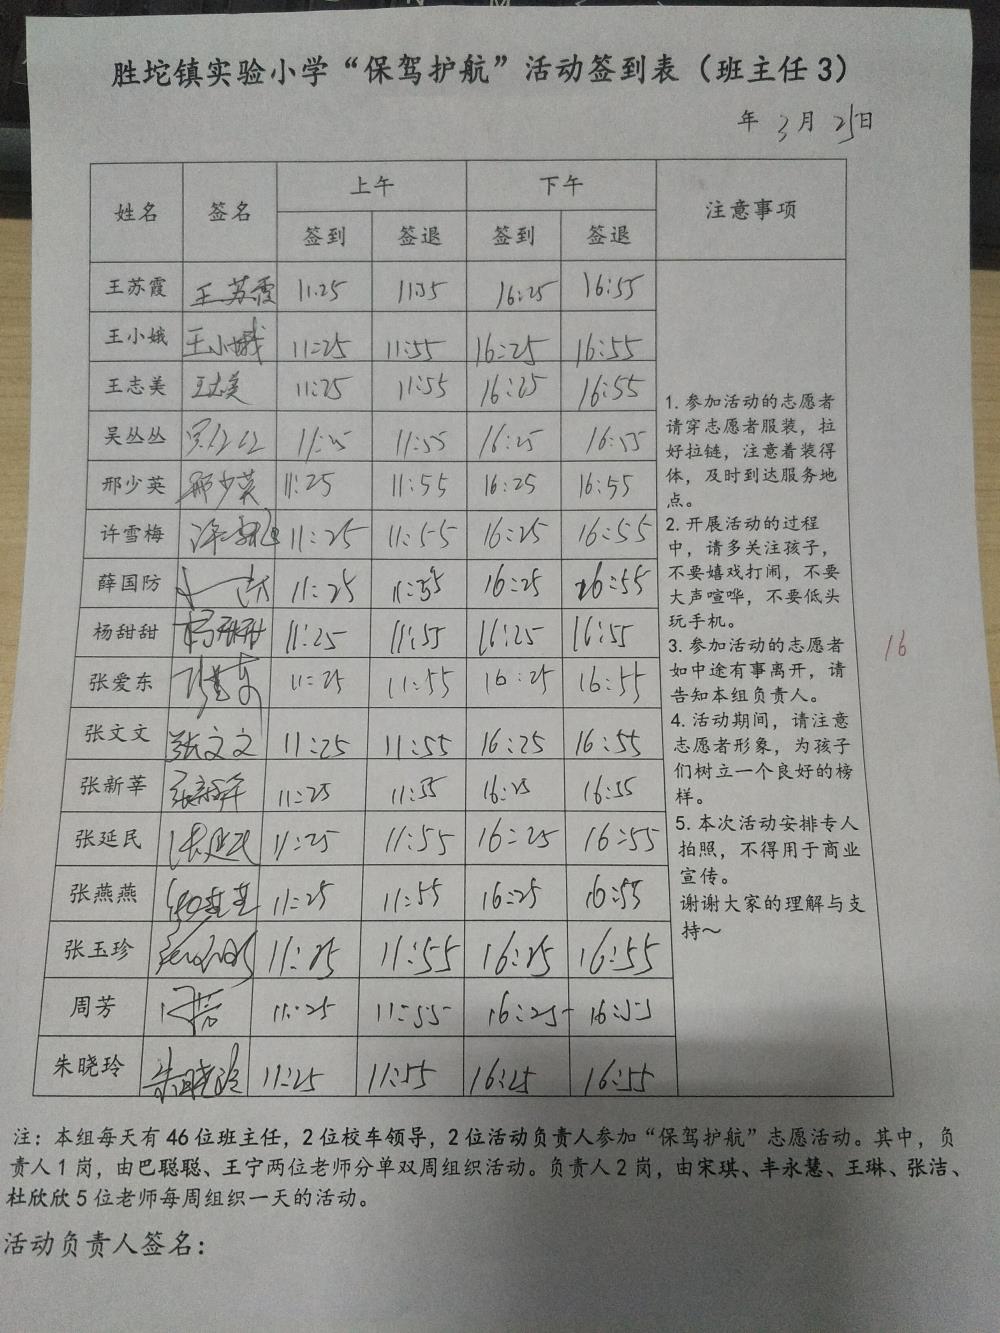 胜坨镇实验小学“保驾护航”活动签到表（班主任3）
年 3月 25日
姓名 签名 上午 下午 注意事项
签到 签退 签到 签退
王苏霞 王苏霞 11:25 11:55 16:25 16:55
王小娥 王小娥 11:25 11:55 16:25 16:55
王志美 王志美 11:25 11:55 16:25 16:55
吴丛丛 吴丛丛 11:25 11:55 16:25 16:55
邢少英 邢少英 11:25 11:55 16:25 16:55
许雪梅 11:25 11:55 16:25 16:55
薛国防 11:25 11:55 16:25 16:55
杨甜甜 杨甜甜 11:25 11:55 16:25 16:55
张爱东 张爱东 11:25 11:55 16:25 16:55
张文文 张文文 11:25 11:55 16:25 16:55
张新莘 张新莘 11:25 11:55 16:25 16:55
张延民 张延民 11:25 11:55 16:25 16:55
张燕燕 11:25 11:55 16:25 16:55
张玉珍 11:25 11:55 16:25 16:55
周芳 周芳 11:25 11:55 16:25 16:55
朱晓玲 朱晓玲 11:25 11:55 16:25 16:55
1. 参加活动的志愿者
请穿志愿者服装，拉
好拉链，注意着装得
体，及时到达服务地
点。
2. 开展活动的过程
中，请多关注孩子，
不要嬉戏打闹，不要
大声喧哗，不要低头
玩手机。
3. 参加活动的志愿者
如中途有事离开，请
告知本组负责人。
4. 活动期间，请注意
志愿者形象，为孩子
们树立一个良好的榜
样。
5. 本次活动安排专人
拍照，不得用于商业
宣传。
谢谢大家的理解与支
持～
16
注：本组每天有46位班主任，2位校车领导，2位活动负责人参加“保驾护航”志愿活动。其中，负
责人1岗，由巴聪聪、王宁两位老师分单双周组织活动。负责人2岗，由宋琪、丰永慧、王琳、张洁、
杜欣欣5位老师每周组织一天的活动。
活动负责人签名：